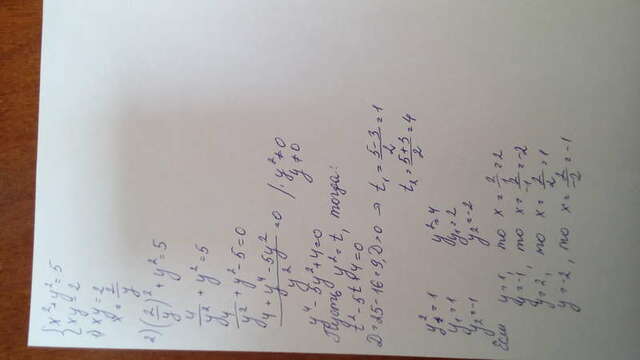 {x²+y²=5
{xy=2
1) xy=2
x=2/y
2) (2/y)²+y²=5
4/y²+y²=5
4/y²+y²-5=0
(4+y⁴-5y²)/y²=0 /·y²≠0
y≠0
y⁴-5y²+4=0
Пусть y²=t, тогда:
t²-5t+4=0
D=25-16=9, D>0 → t₁=(5-3)/2=1
t₂=(5+3)/2=4
y²=1 y²=4
y₁=1 y₁=2
y₂=-1 y₂=-2
Если y=1, то x=2/1=2
y=-1, то x=2/-1=-2
y=2, то x=2/2=1
y=-2, то x=2/-2=-1